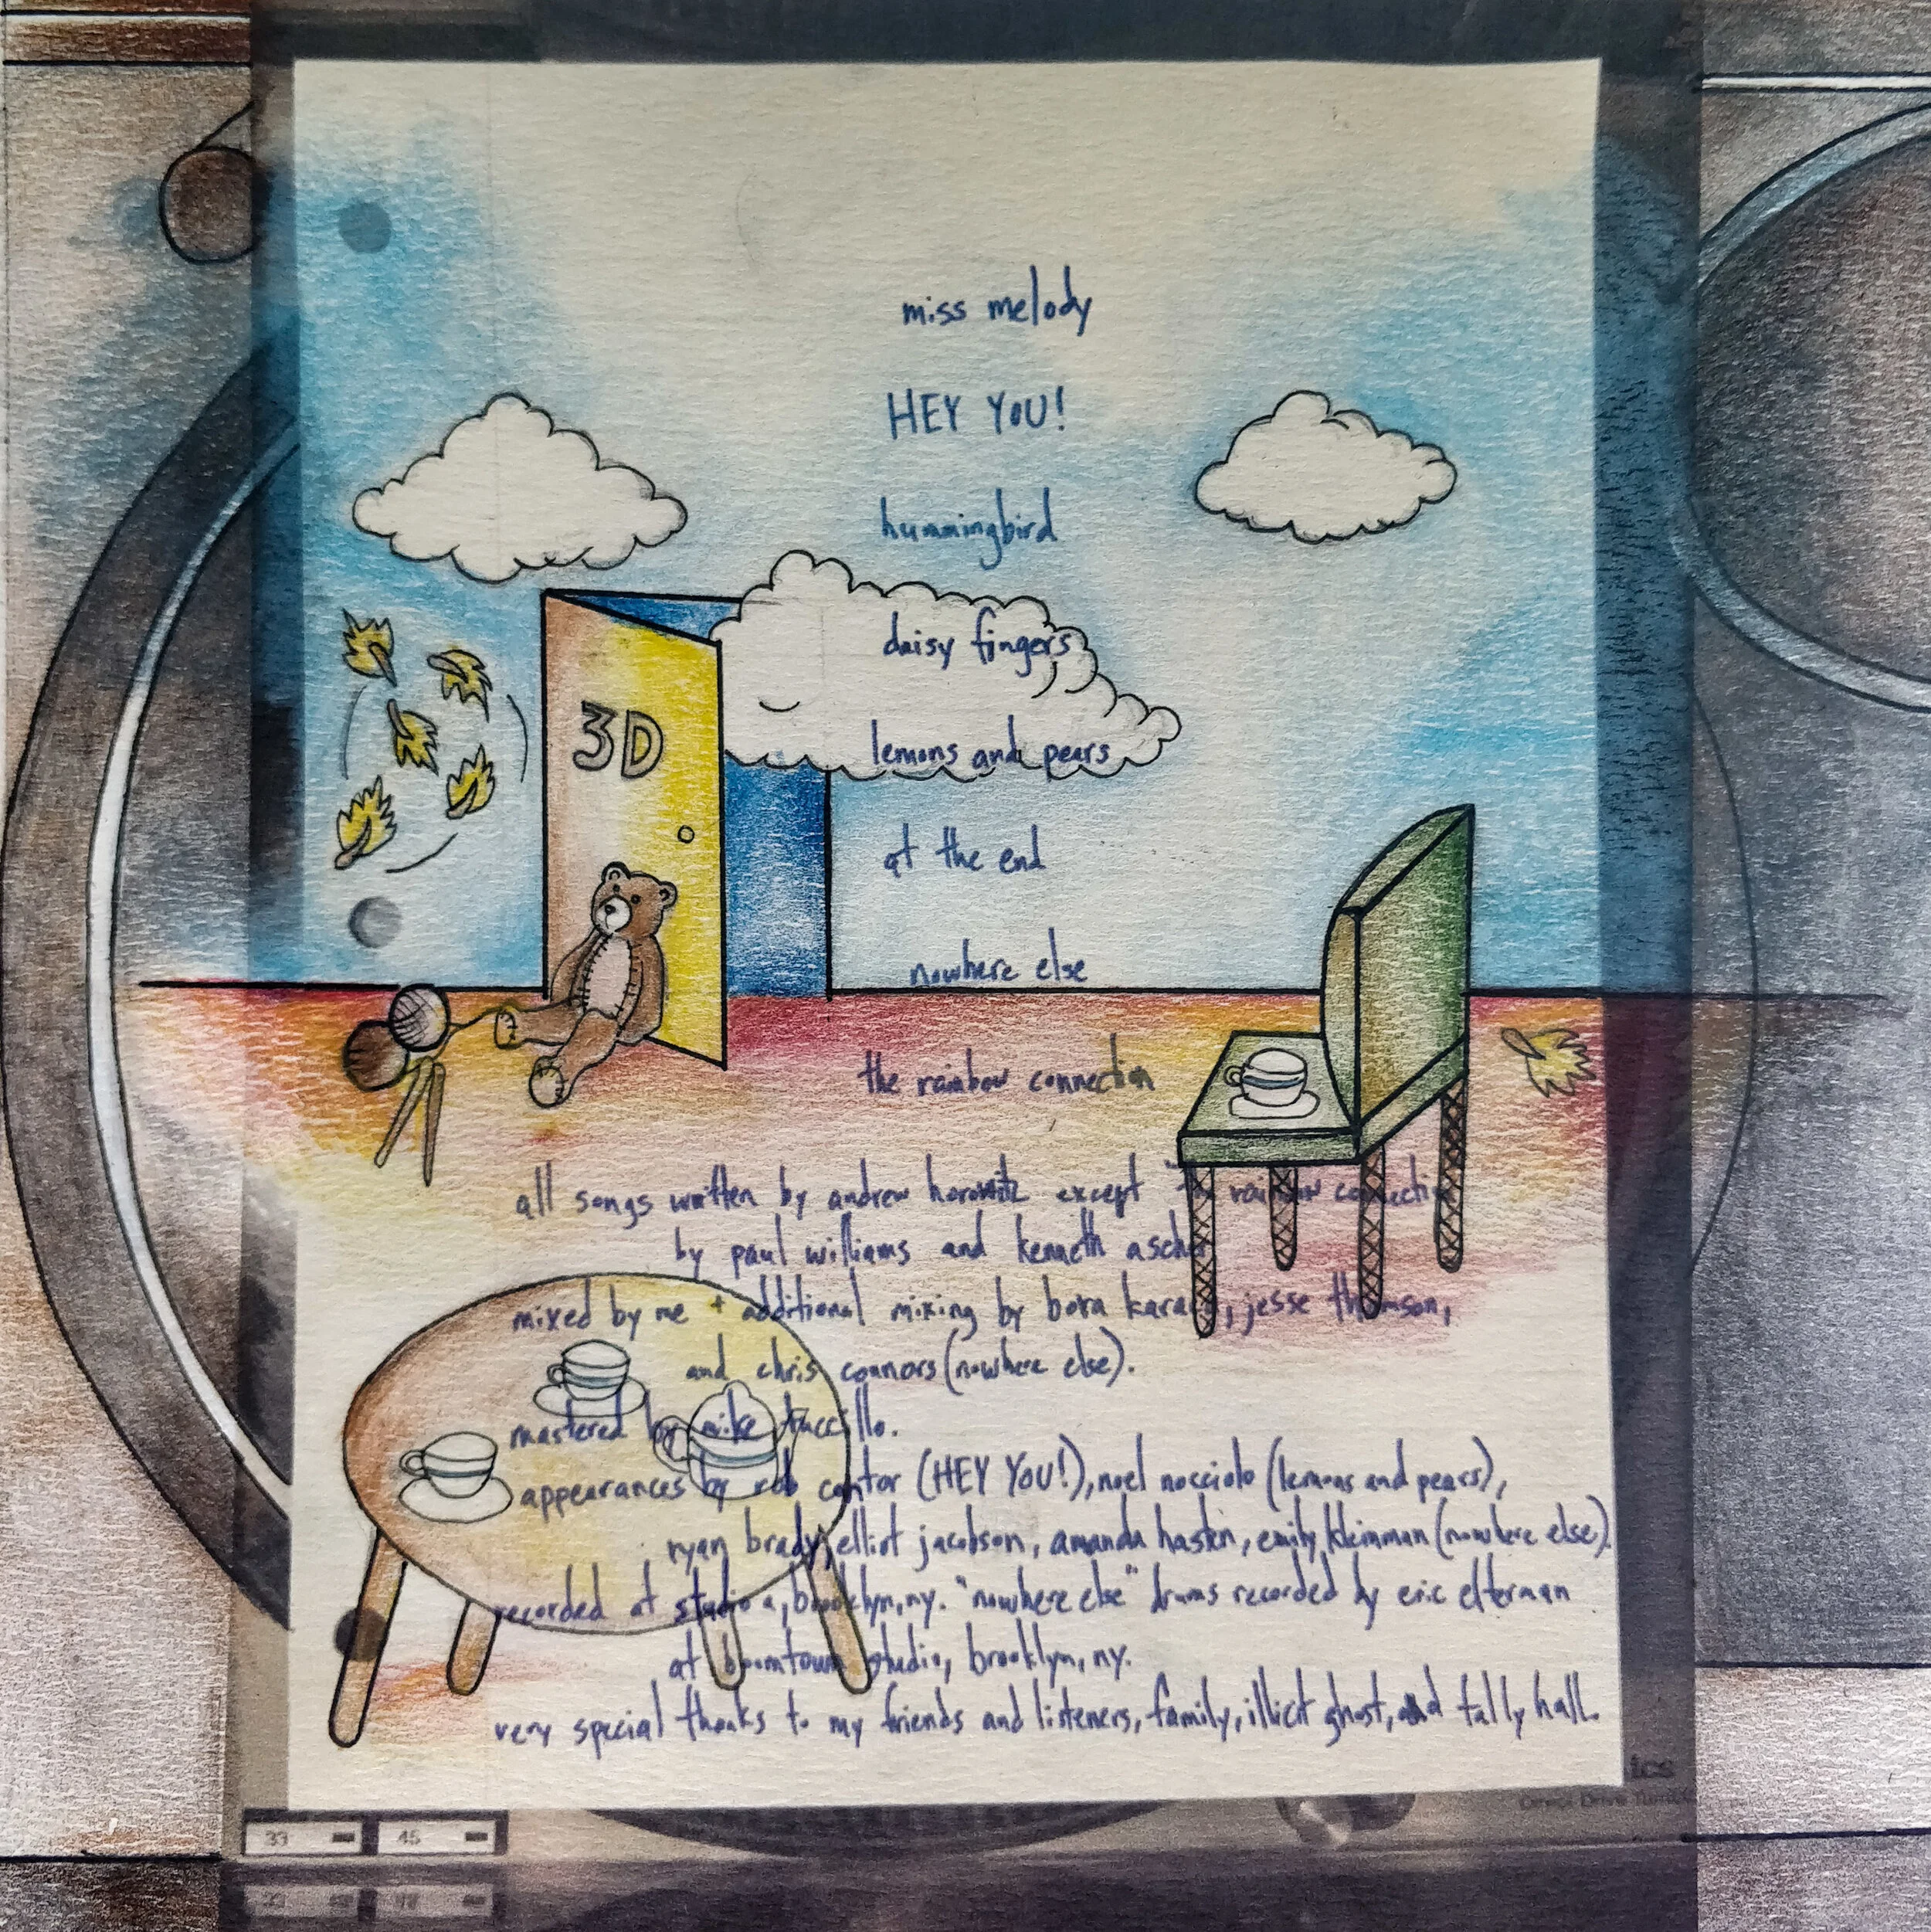 miss melody
HEY YOU!
hummingbird
daisy fingers
lemons and pears
3D
at the end
nowhere else
the rainbow connection
all songs written by andrew horowitz except "the rainbow connection
by paul williams and kenneth ascher
mixed by me + additional mixing by bora, jesse thomson,
and chris connors (nowhere else).
mastered by mike
appearances by rob cantor (HEY YOU!), noel nocciolo (lemons and pears),
ryan brady, elliot jacobson, amanda haskin, emily kleinman (nowhere else).
recorded at studio a, brooklyn, ny. "nowhere else" drums recorded by eric elterman
at boomtown studio, brooklyn, ny.
very special thanks to my friends and listeners, family, illicit ghost, and tally hall.
ics
Direct Drive
33 45